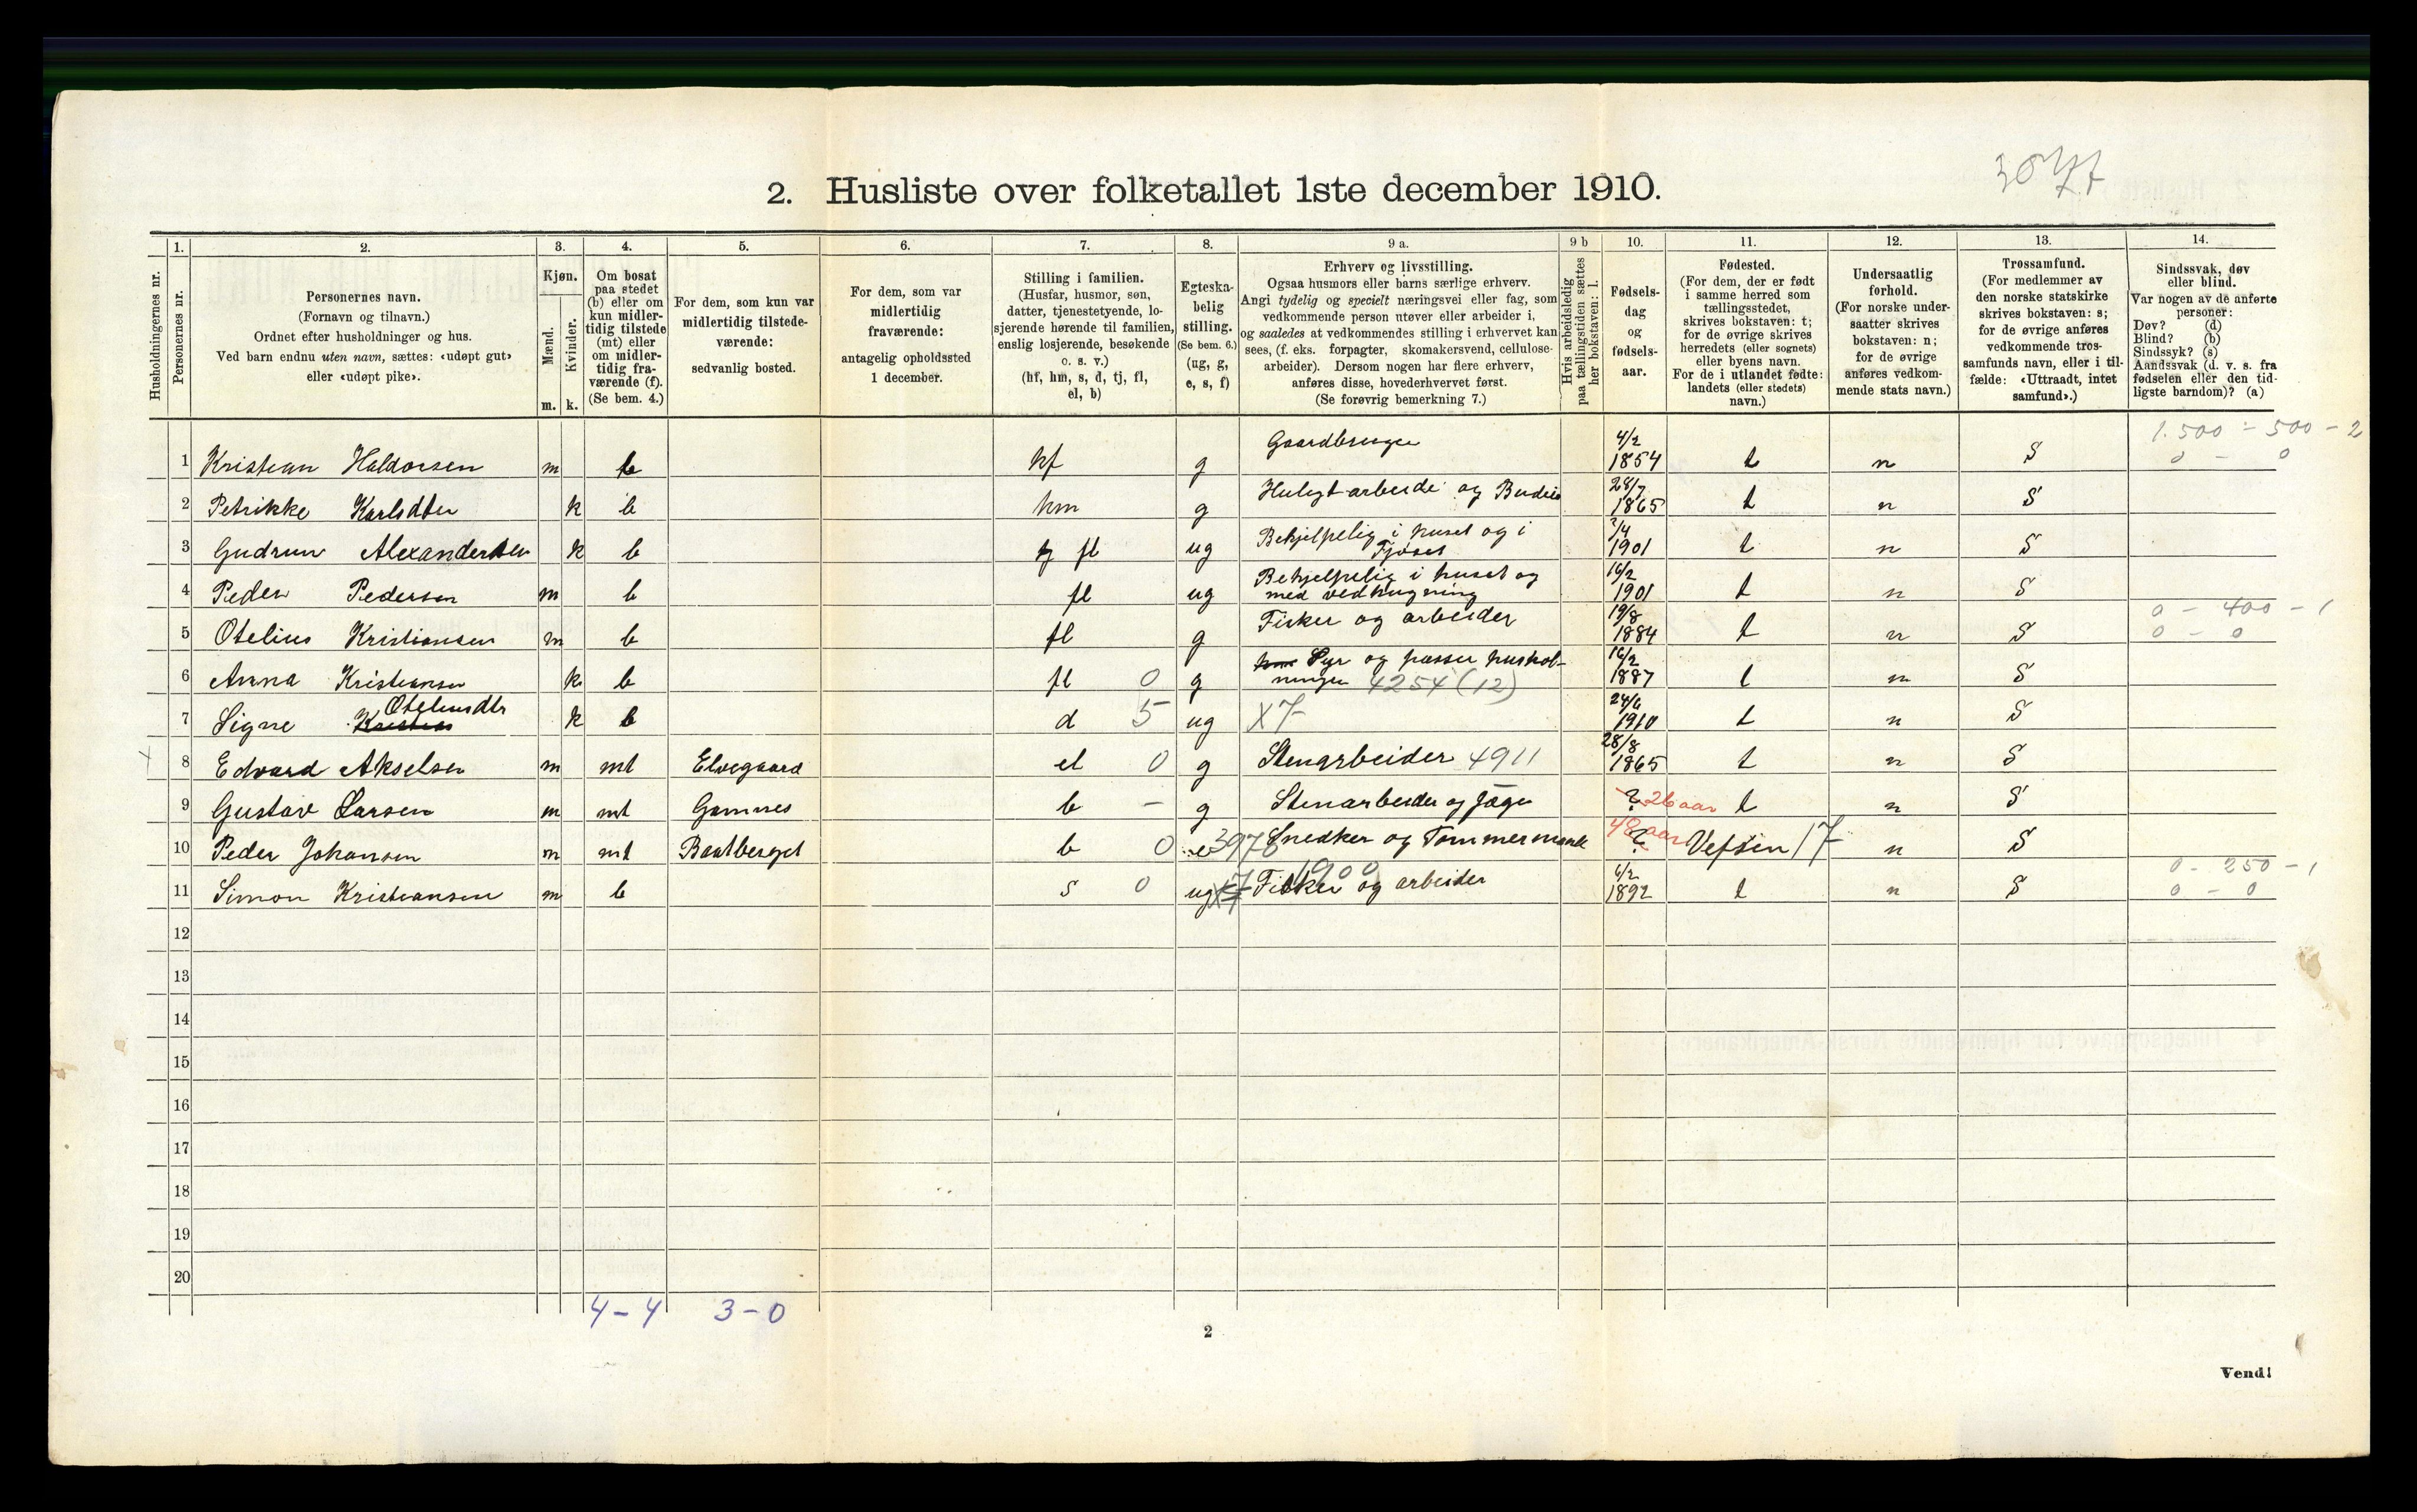 2. Husliste over folketallet 1ste december 1910.
1. 2. 3. 4. 5. 6. 7. 8. 9 a. 9 b 10. 11. 12. 13. 14.
Husholdningernes nr.
Personernes nr.
Personernes navn.
(Fornavn og tilnavn.)
Ordnet efter husholdninger og hus.
Ved barn endnu uten navn, sættes: «udøpt gut»
eller «udøpt pike».
Kjøn.
Mænd.
Kvinder.
m. k.
Om bosat
paa stedet
(b) eller om
kun midler-
tidig tilstede
(mt) eller
om midler-
tidig fra-
værende (f).
(Se bem. 4.)
For dem, som kun var
midlertidig tilstede-
værende:
sedvanlig bosted.
For dem, som var
midlertidig
fraværende:
antagelig opholdssted
1 december.
Stilling i familien.
(Husfar, husmor, søn,
datter, tjenestetyende, lo-
sjerende hørende til familien,
enslig losjerende, besøkende
o. s. v.)
(hf, hm, s, d, tj, fl,
el, b)
Egteska-
belig
stilling.
(Se bem. 6.)
(ug, g,
e, s, f)
Erhverv og livsstilling.
Ogsaa husmors eller barns særlige erhverv.
Angi tydelig og specielt næringsvei eller fag, som
vedkommende person utøver eller arbeider i,
og saaledes at vedkommendes stilling i erhvervet kan
sees, (f. eks. forpagter, skomakersvend, cellulose-
arbeider). Dersom nogen har flere erhverv,
anføres disse, hovederhvervet først.
(Se forøvrig bemerkning 7.)
Hvis arbeidsledig
paa tællingstiden sættes
her bokstaven: l.
Fødsels-
dag
og
fødsels-
aar.
Fødested.
(For dem, der er født
i samme herred som
tællingsstedet,
skrives bokstaven: t;
for de øvrige skrives
herredets (eller sognets)
eller byens navn.
For de i utlandet fødte:
landets (eller stedets)
navn.)
Undersaatlig
forhold.
(For norske under-
saatter skrives
bokstaven: n;
for de øvrige
anføres vedkom-
mende stats navn.)
Trossamfund.
(For medlemmer av
den norske statskirke
skrives bokstaven: s;
for de øvrige anføres
vedkommende tros-
samfunds navn, eller i til-
fælde: «Uttraadt, intet
samfund».)
Sindssvak, døv
eller blind.
Var nogen av de anførte
personer:
Døv? (d)
Blind? (b)
Sindssyk? (s)
Aandssvak (d. v. s. fra
fødselen eller den tid-
ligste barndom)? (a)
1.500 - 500 - 2
0 - 0
1 Kristian Haldorsen m b hf g Gaardbruger 4/2 1854 t n S
2 Petrikke Karlsdter k b hm g og Budeie 28/7 1865 t n S
3 Gudrun Alexandersen k b fl ug Behjelpelig i huset og i
Fjøset /4 1901 t n S
4 Peder Pedersen m b fl ug Behjelpelig i huset og
med vedhugning 16/2 1901 t n S
0 - 400 - 1
5 Otelius Kristiansen m b fl g Fisker og arbeider 19/8 1884 t n S 0 - 0
6 Anna Kristiansen k b fl 0 g Syr og passer hushol-
ningen 4254 (12) 16/2 1887 t n S
Oteliusdtr
7 Signe k b d 5 ug X7 24/6 1910 t n S
8 Edvard Akselsen m mt Elvegaard el 0 g Stenarbeider 4911 28/8 1865 t n S
9 Gustav Larsen m mt Gamnes b - g Stenarbeider og Jæger ? 26 aar t n S
10 Peder Johansen m mt Baatberget b 0 e 3978 Snedker og Tømmermand 48 aar ? Vefsen 17 n S
1900
0 - 250 - 1
11 Simon Kristiansen m b s 0 ug X7 Fisker og arbeider 6/2 1892 t n S 0 - 0
12
13
14
15
16
17
18
19
20
4 - 4 3 - 0
2
Vend!